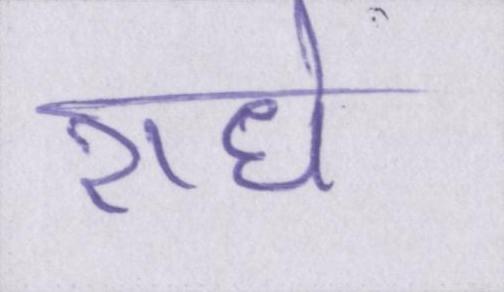 राधे